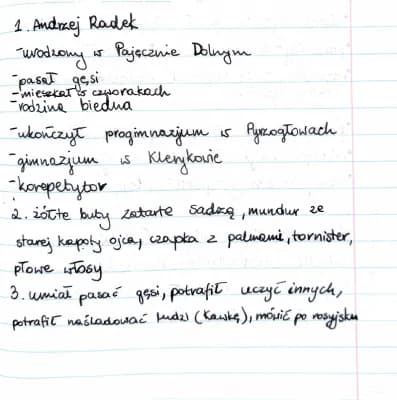 1. Andrzej Radek
-urodzony w Pajęcznie Dolnym
-pasał gęsi
-mieszkał w czworakach
-rodzina biedna
-ukończył progimnazjum w Pyrzogłowach
-gimnazjum w Klerykowie
-korepetytor
2. żółte buty zatarte sadzą, mundur ze
starej kapoty ojca, czapka z palmami, tornister,
płowe włosy
3. umiał pasać gęsi, potrafił uczyć innych,
potrafił naśladować ludzi (Kawkę), mówić po rosyjsku